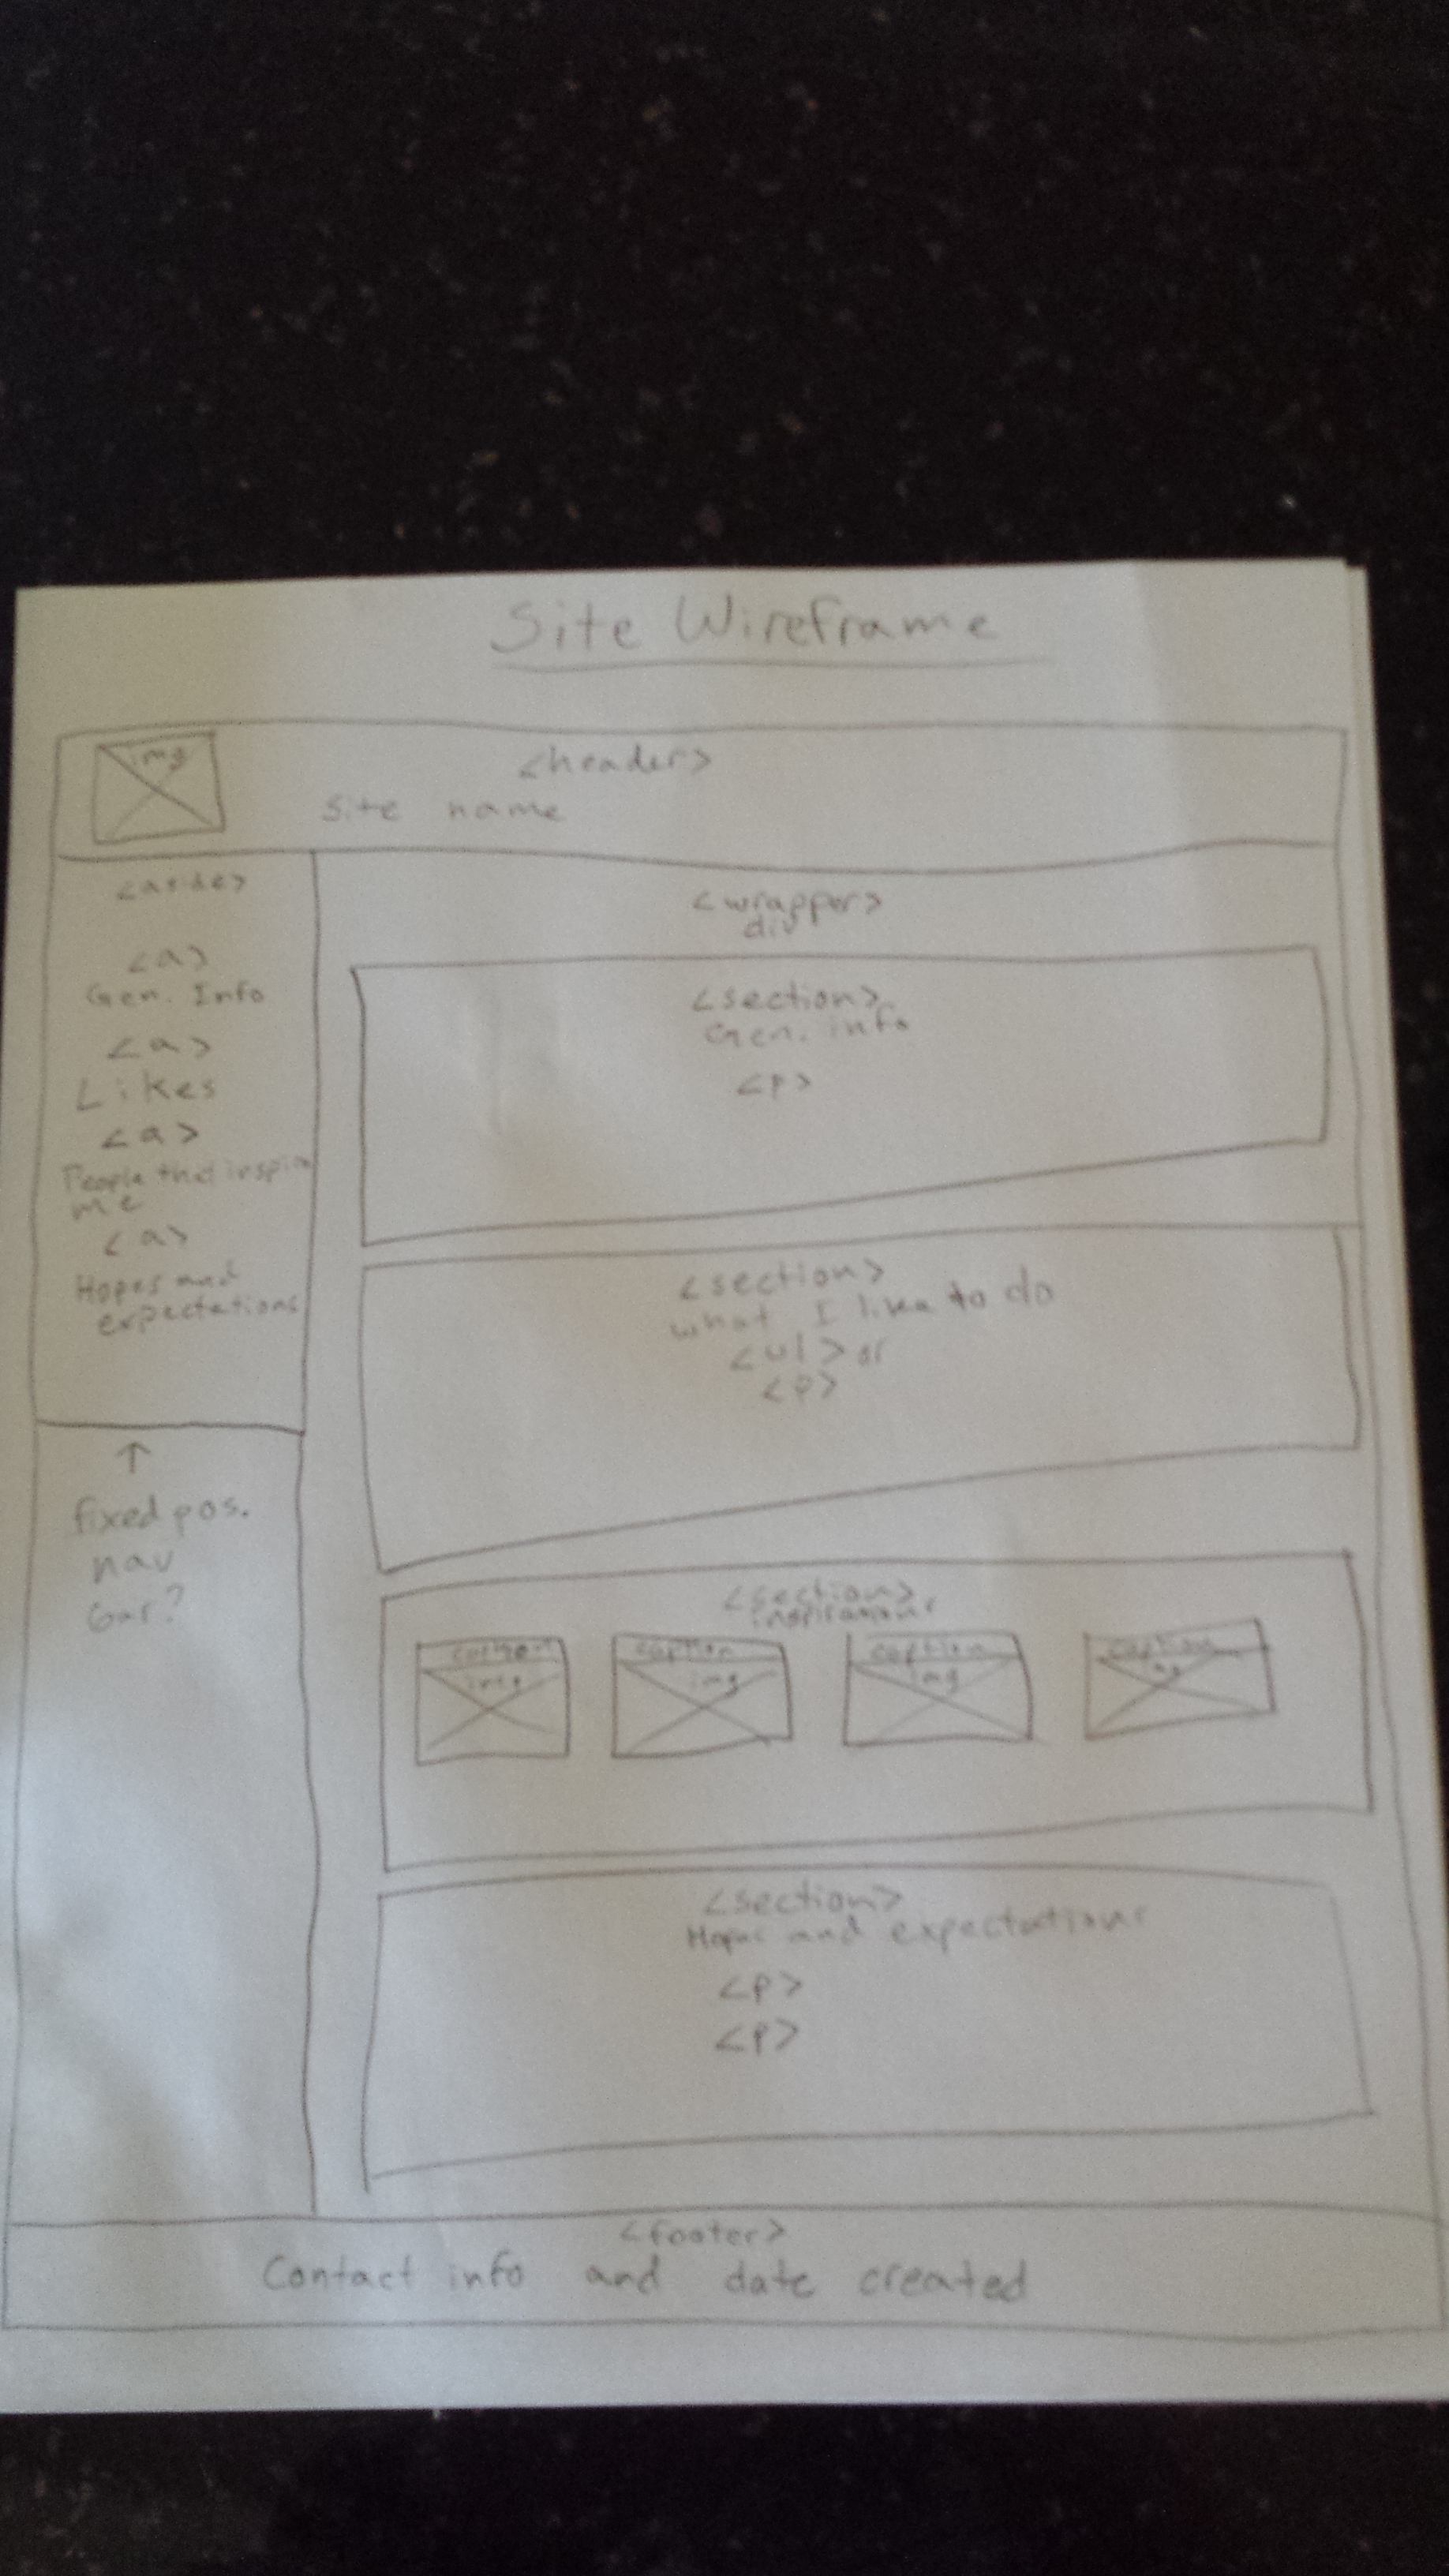 Site Wireframe
img
<header>
Site name
<aside>
<a>
Gen. Info
<a>
Likes
<a>
People that inspire
me
<a>
Hopes and
expectations
↑
fixed pos.
nav
bar?
<wrapper>
div
<section>
Gen. info
<p>
<section>
what I like to do
<ul> or
<p>
<section>
inspirations
caption
img
caption
img
caption
img
caption
img
<section>
Hopes and expectations
<p>
<p>
<footer>
Contact info and date created